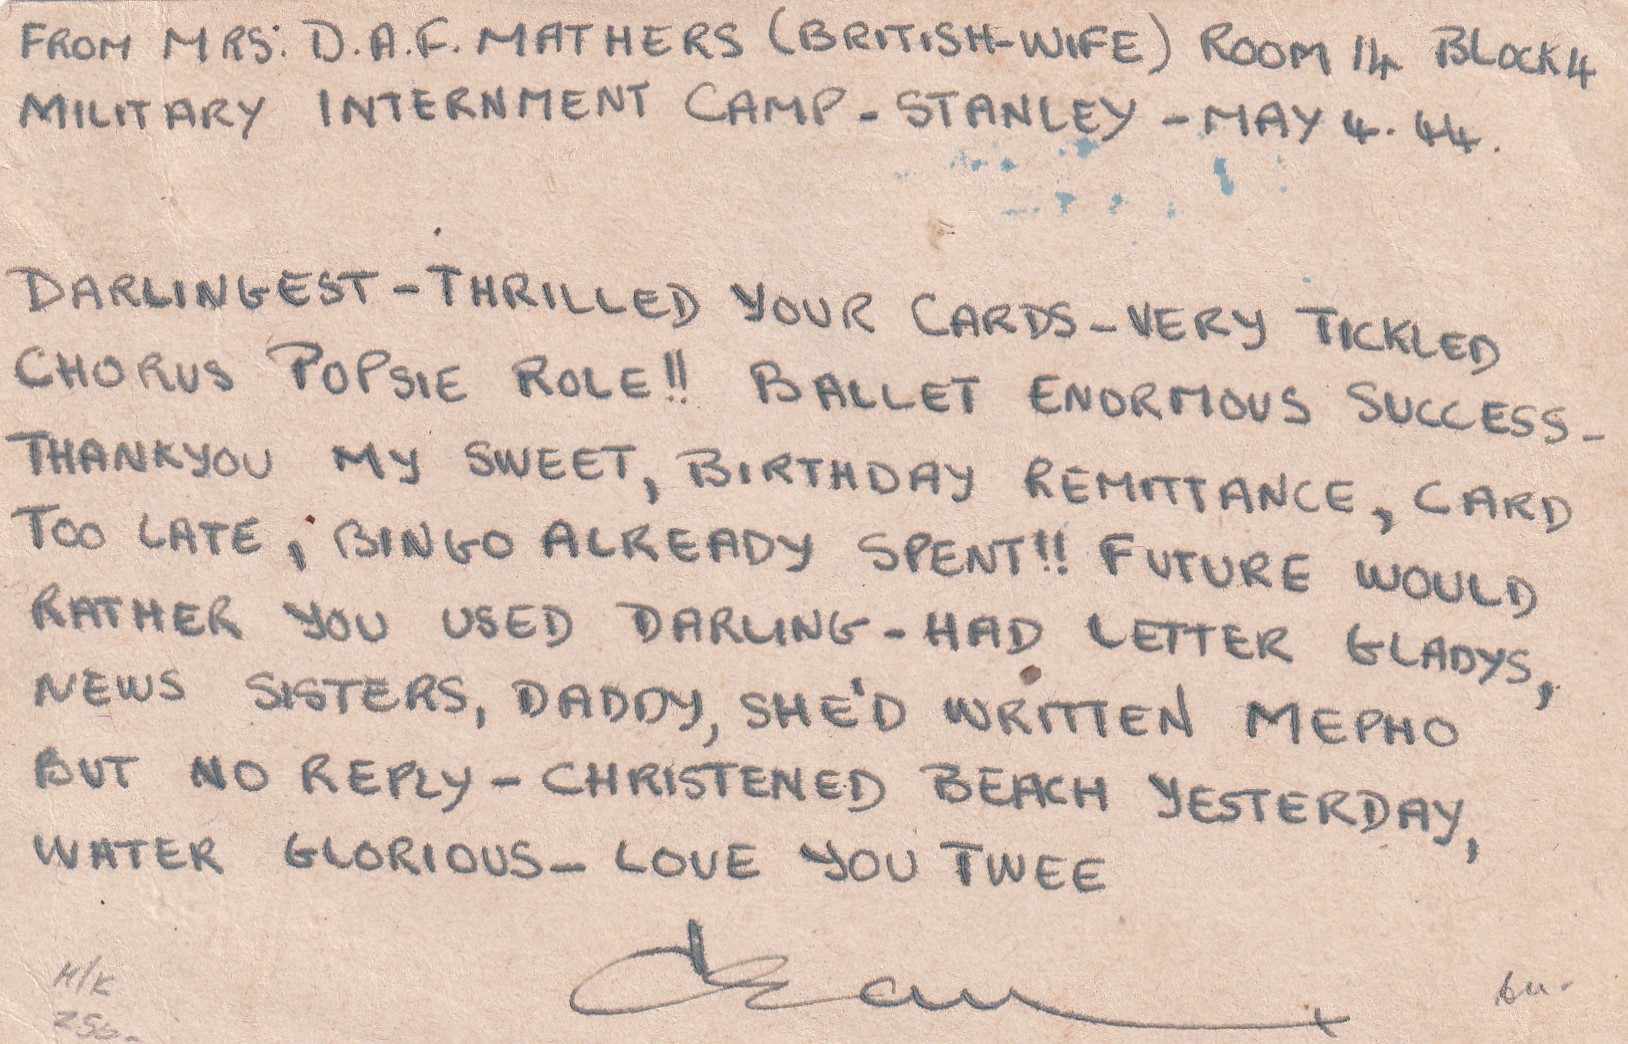 FROM MRS: D.A.F. MATHERS (BRITISH-WIFE) ROOM 14 BLOCK 4
MILITARY INTERNMENT CAMP - STANLEY - MAY 4. 44.
DARLINGEST - THRILLED YOUR CARDS - VERY TICKLED
CHORUS POPSIE ROLE!! BALLET ENORMOUS SUCCESS -
THANKYOU MY SWEET, BIRTHDAY REMITTANCE, CARD
TOO LATE, BINGO ALREADY SPENT!! FUTURE WOULD
RATHER YOU USED DARLING - HAD LETTER GLADYS,
NEWS SISTERS, DADDY, SHE'D WRITTEN MEPHO
BUT NO REPLY - CHRISTENED BEACH YESTERDAY,
WATER GLORIOUS - LOVE YOU TWEE
H/K